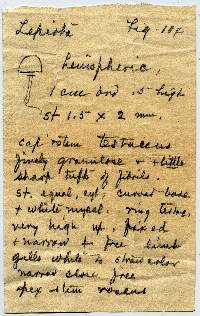 Lepiota Fig 184
hemispheric,
1 cm and .5 high
st 1.5 x 2 mm.
cap rotem testaceus
finely granulose & + little
sharp tufts of fibrils.
st. equal, cyl. curved base
+ white mycel. ring testac,
very high up, fixed
+ narrow + free limb
gills white to straw color
narrow close free
apex stem roseus